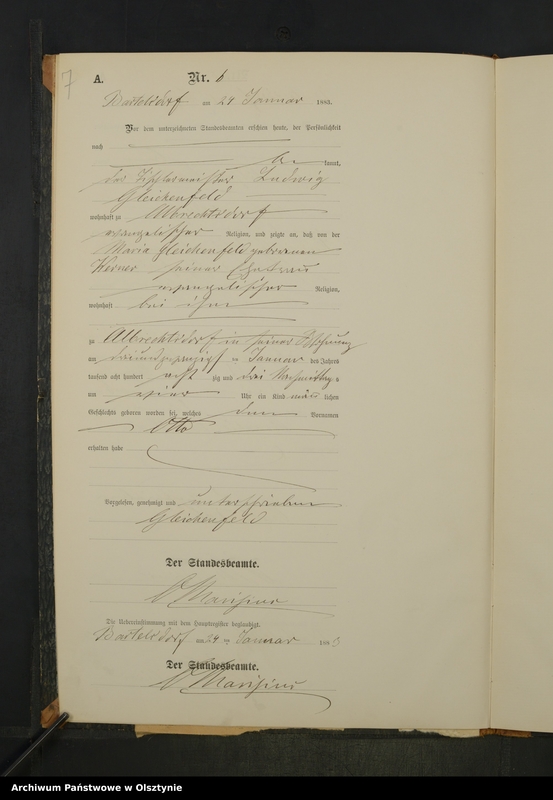 7
A.
Nr. 6
Bartelsdorf am 24 Januar 1883.
Vor dem unterzeichneten Standesbeamten erschien heute, der Persönlichkeit
nach
be kannt,
der Tischlermeister Ludwig
Gleichenfeld
wohnhaft zu Albrechtsdorf
evangelischer Religion, und zeigte an, daß von der
Maria Gleichenfeld geborenen
Kerner seiner Ehefrau
evangelischer Religion,
wohnhaft bei ihm
zu Albrechtsdorf in seiner Wohnung
am dreiundzwanzigsten Januar des Jahres
tausend acht hundert acht zig und drei Nachmittag s
um vier Uhr ein Kind männ lichen
Geschlechts geboren worden sei, welches den Vornamen
Otto
erhalten habe
Vorgelesen, genehmigt und unterschrieben
Gleichenfeld
Der Standesbeamte.
Die Uebereinstimmung mit dem Hauptregister beglaubigt.
Bartelsdorf am 24 ten Januar 1883
Der Standesbeamte.
Archiwum Państwowe w Olsztynie